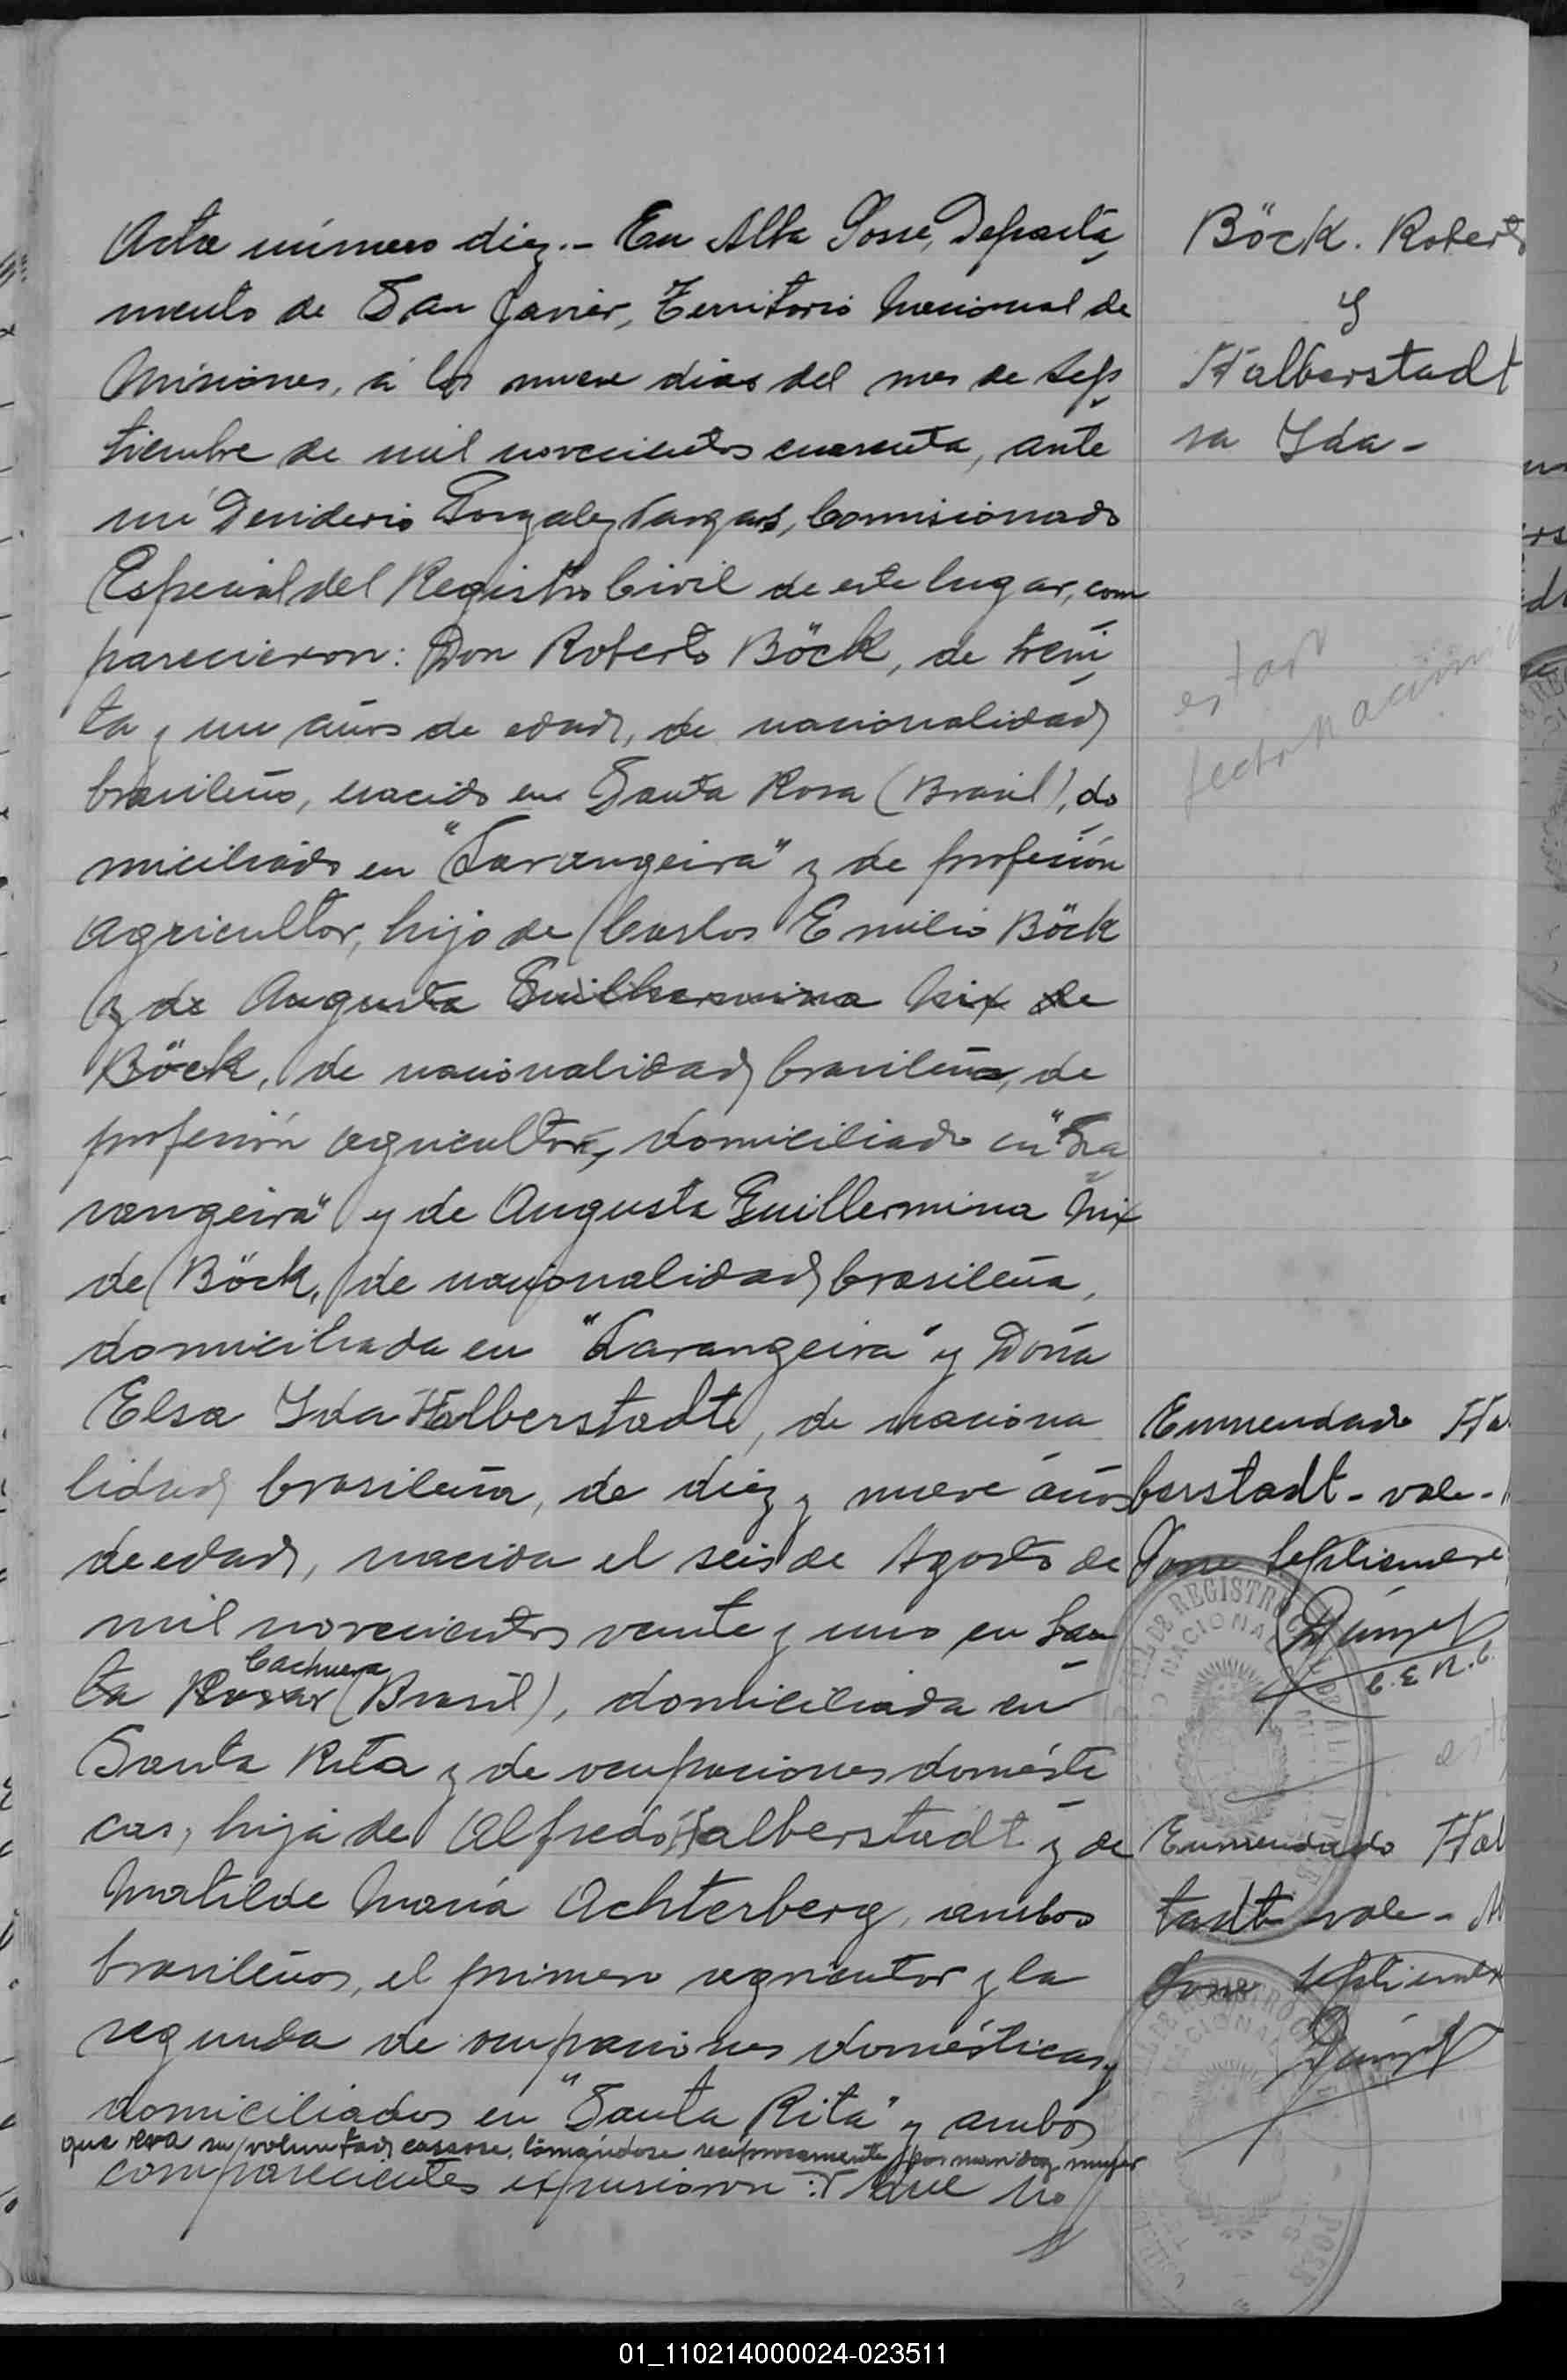 Acta número diez.- En Alba Posse, Departa
mento de San Javier, Territorio Nacional de
Misiones, á los nueve dias del mes de Sep
tiembre de mil novecientos cuarenta, ante
mi Desiderio Gonzalez Vargas, Comisionado
Especial del Registro Civil de este lugar, com
parecieron: Don Roberto Böck, de trein
ta y un años de edad, de nacionalidad
brasileño, nacido en Santa Rosa (Brasil), do
miciliado en "Larangeira" y de profesión
agricultor, hijo de Carlos Emilio Böck
y de Augusta Guilhermina Nix de
Böck, de nacionalidad brasileña, de
profesión agricultor, domiciliado en "La
rangeira" y de Augusta Guillermina Nix
de Böck, de nacionalidad brasileña,
domiciliada en "Larangeira" y Doña
Elsa Ida Halberstadt, de naciona
lidad brasileña, de diez y nueve años
de edad, nacida el seis de Agosto de
mil novecientos veinte y uno en San
Cachuera
ta Rosa (Brasil), domiciliada en
Santa Rita y de ocupaciones domésti
cas, hija de Alfredo Halberstadt y de
Matilde María Achterberg, ambos
brasileños, el primero agricultor y la
segunda de ocupaciones domésticas y
domiciliados en "Santa Rita" y ambos
que era su voluntad casarse, tomándose recíprocamente por marido y mujer
comparecientes expusieron: Que no
Böck. Roberto
y
Halberstadt
sa Ida -
estado
Enmendado Hal
berstadt - vale -
Posse Septiembre
C. E. R. C.
Enmendado Hal
tadt vale -
Posse Septiembre
REGISTRO
NACIONAL
REGISTRO
NACIONAL
01_110214000024-023511